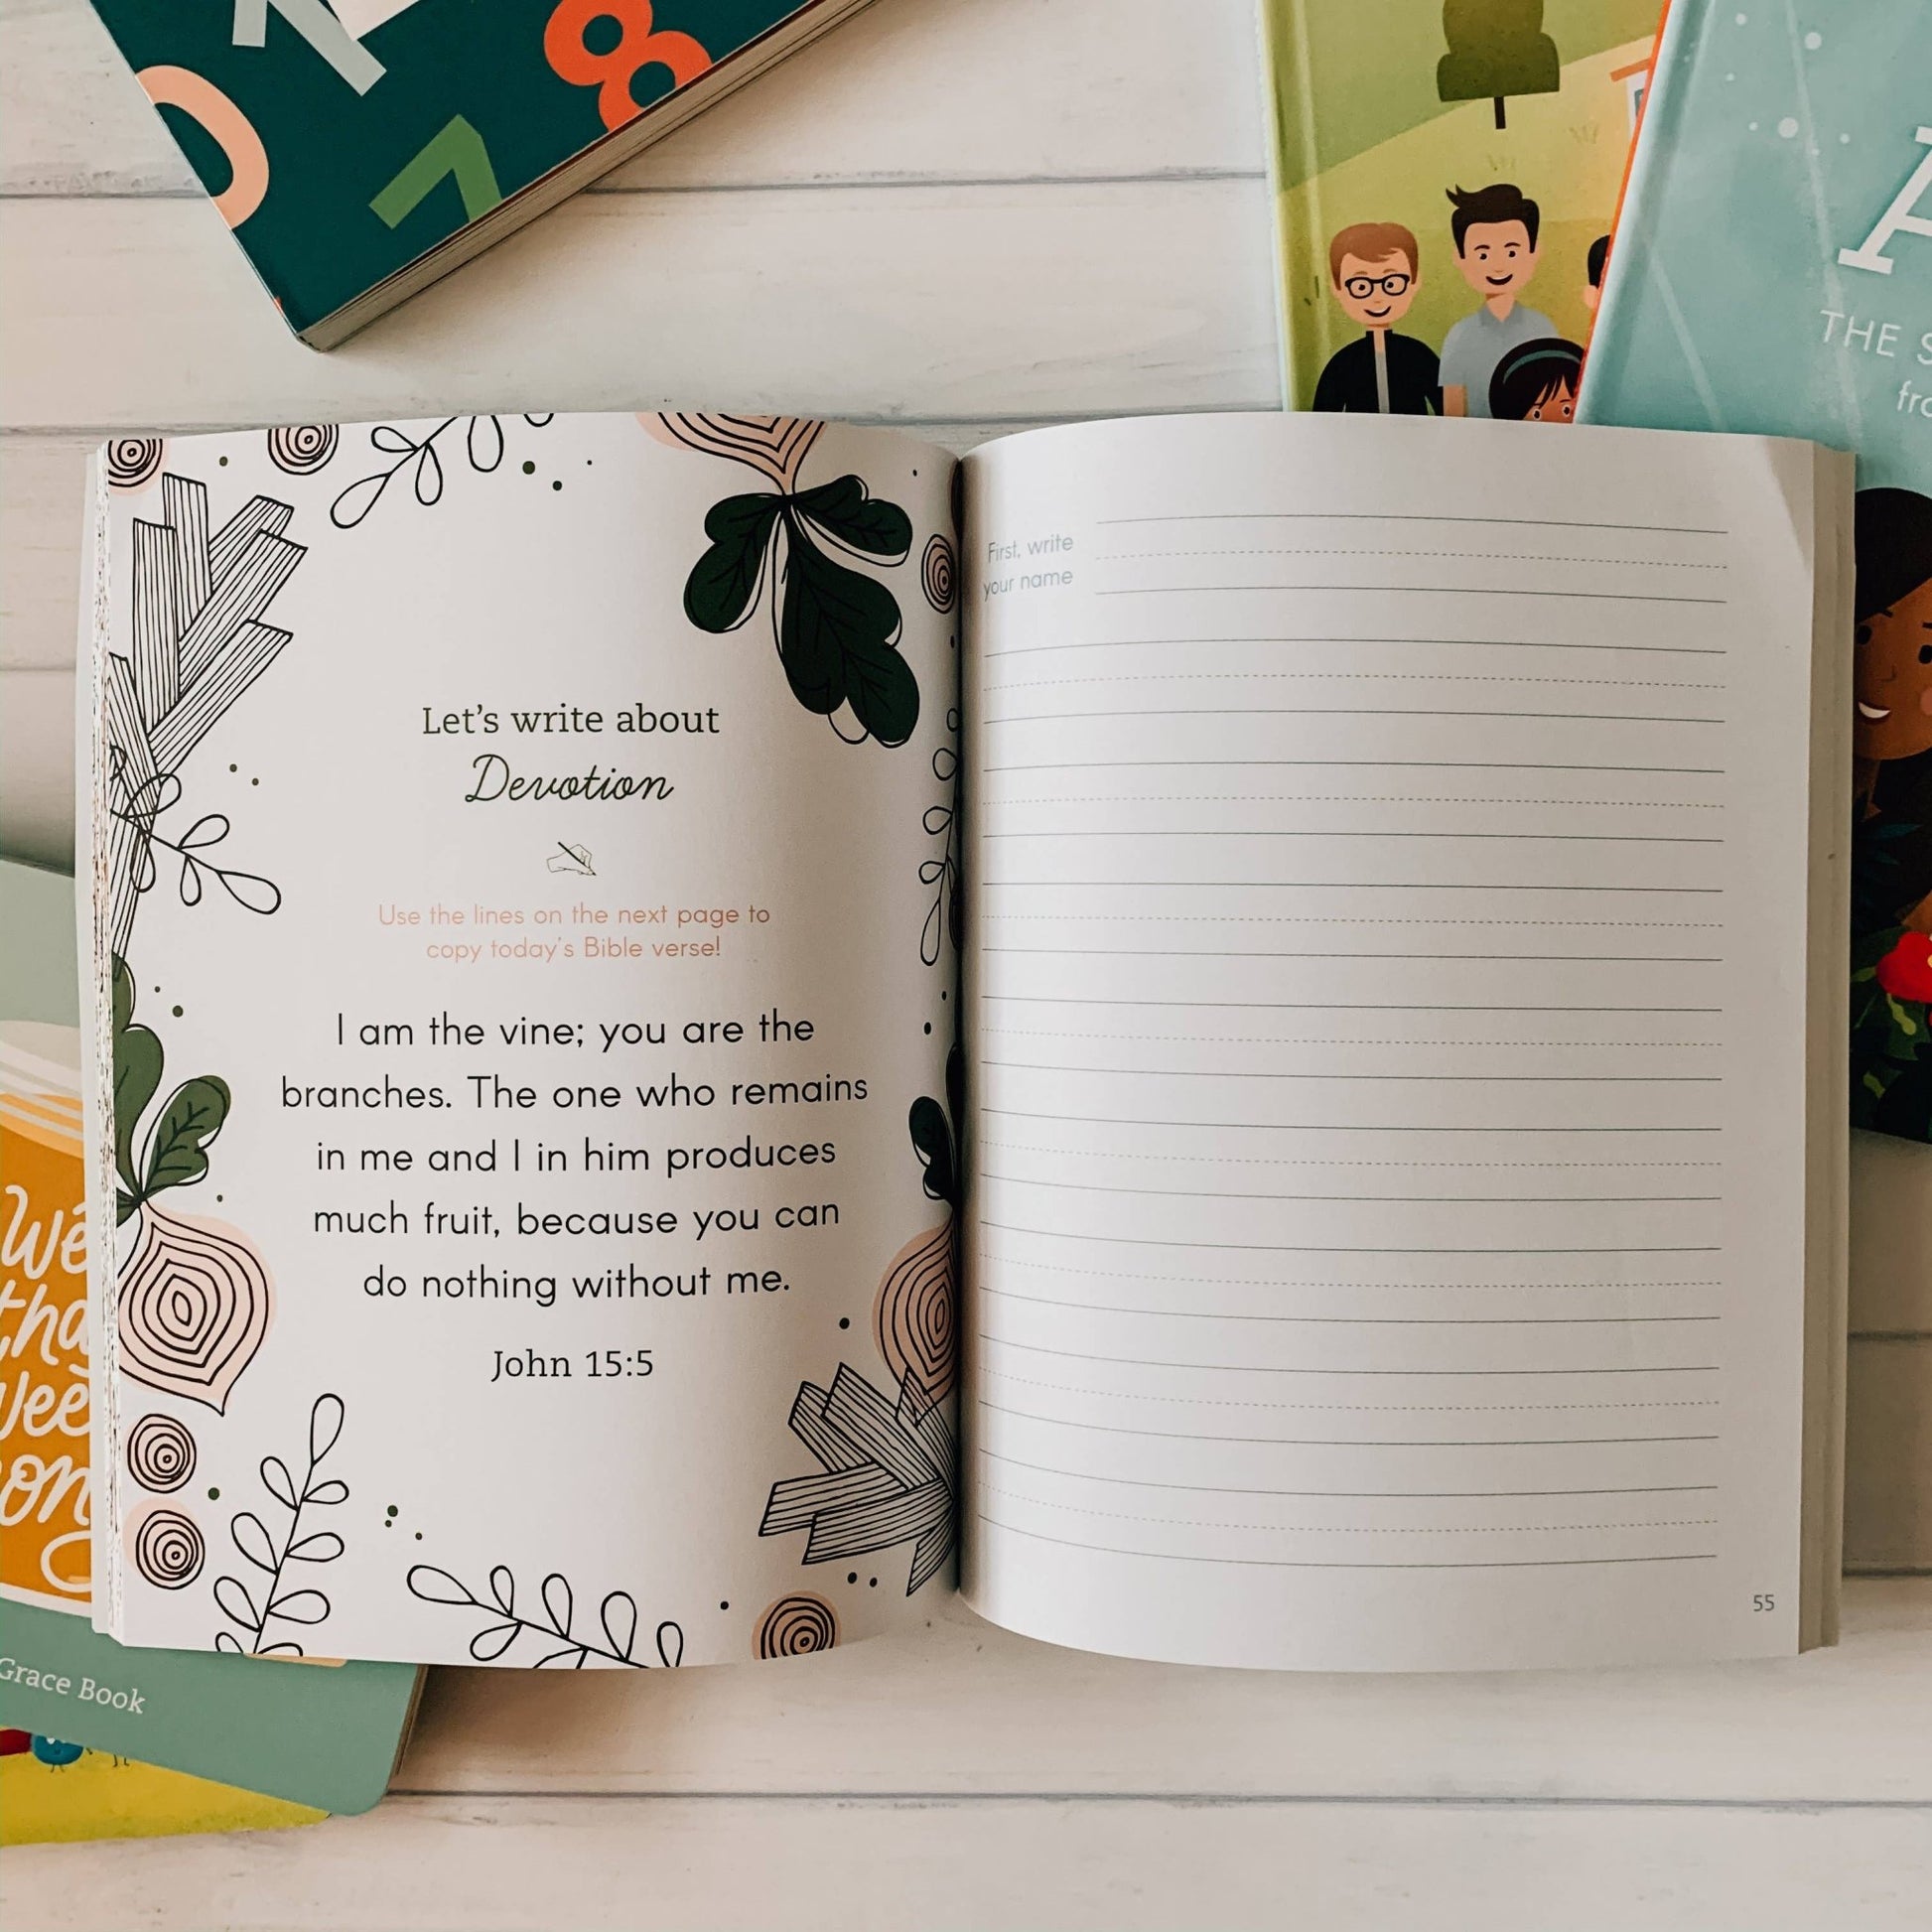 0 1 8
7
THE
Let's write about
Devotion
Use the lines on the next page to
copy today's Bible verse!
I am the vine; you are the
branches. The one who remains
in me and I in him produces
much fruit, because you can
do nothing without me.
John 15:5
First, write
your name
55
We
Grace Book